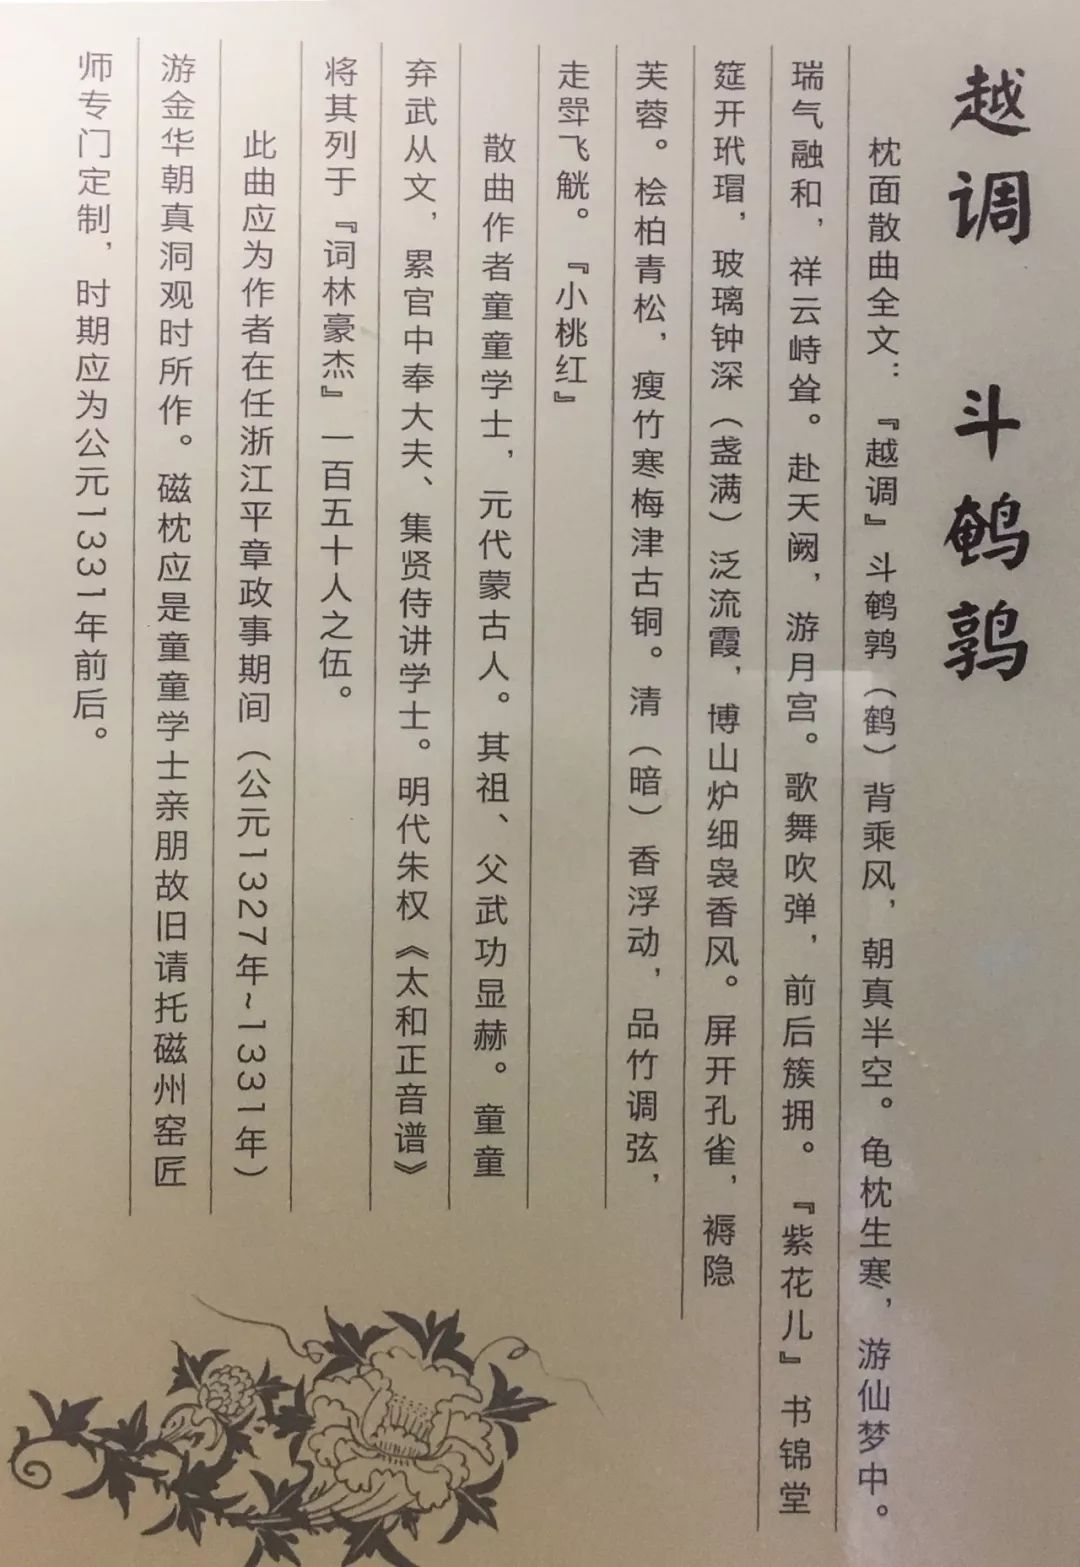 越调 斗鹌鹑
枕面散曲全文：『越调』斗鹌鹑（鹤）背乘风，朝真半空。龟枕生寒，游仙梦中。
瑞气融和，祥云峙耸。赴天阙，游月宫。歌舞吹弹，前后簇拥。『紫花儿』书锦堂
筵开玳瑁，玻璃钟深（盏满）泛流霞，博山炉细袅香风。屏开孔雀，褥隐
芙蓉。桧柏青松，瘦竹寒梅津古铜。清（暗）香浮动，品竹调弦，
走斝飞觥。『小桃红』
散曲作者童童学士，元代蒙古人。其祖、父武功显赫。童童
弃武从文，累官中奉大夫、集贤侍讲学士。明代朱权《太和正音谱》
将其列于『词林豪杰』一百五十人之伍。
此曲应为作者在任浙江平章政事期间（公元1327年~1331年）
游金华朝真洞观时所作。磁枕应是童童学士亲朋故旧请托磁州窑匠
师专门定制，时期应为公元1331年前后。